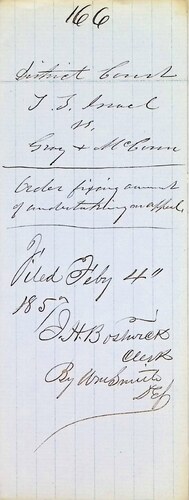 166
District Court
T. S. Israel
vs.
Gray & McCunn
Order fixing amount
of undertaking on appeal.
Filed Feby 4"
1857
J. H. Bostwick
Clerk
By Wm Smith
Dep